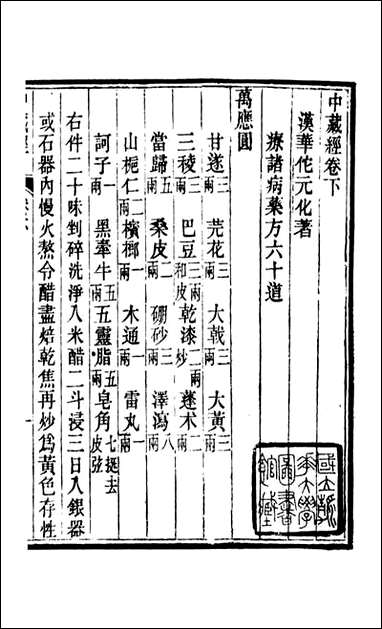 中藏經卷下
漢華佗元化著
療諸病藥方六十道
萬應圓
甘遂三兩 芫花三兩 大戟三兩 大黃三兩
三稜三兩 巴豆二兩和皮 乾漆二兩炒 蓬术二兩
當歸五兩 桑皮二兩 硼砂三兩 澤瀉八兩
山梔仁二兩 檳榔一兩 木通一兩 雷丸一兩
訶子一兩 黑牽牛五兩 五靈脂五兩 皂角七挺去皮弦
右件二十味剉碎洗淨入米醋二斗浸三日入銀器
或石器內慢火熬令醋盡焙乾焦再炒爲黃色存性
國立清
華大學
圖書
館藏